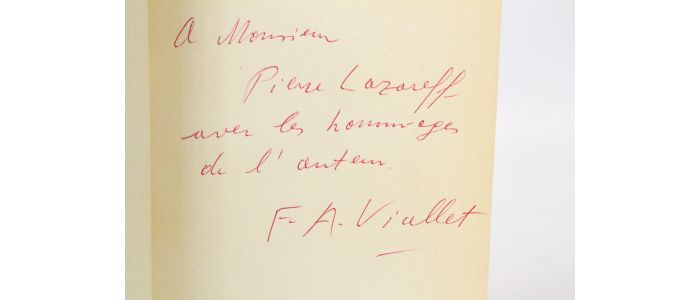 A Monsieur
Pierre Lazareff
avec les hommages
de l'auteur.
F. A. Viallet